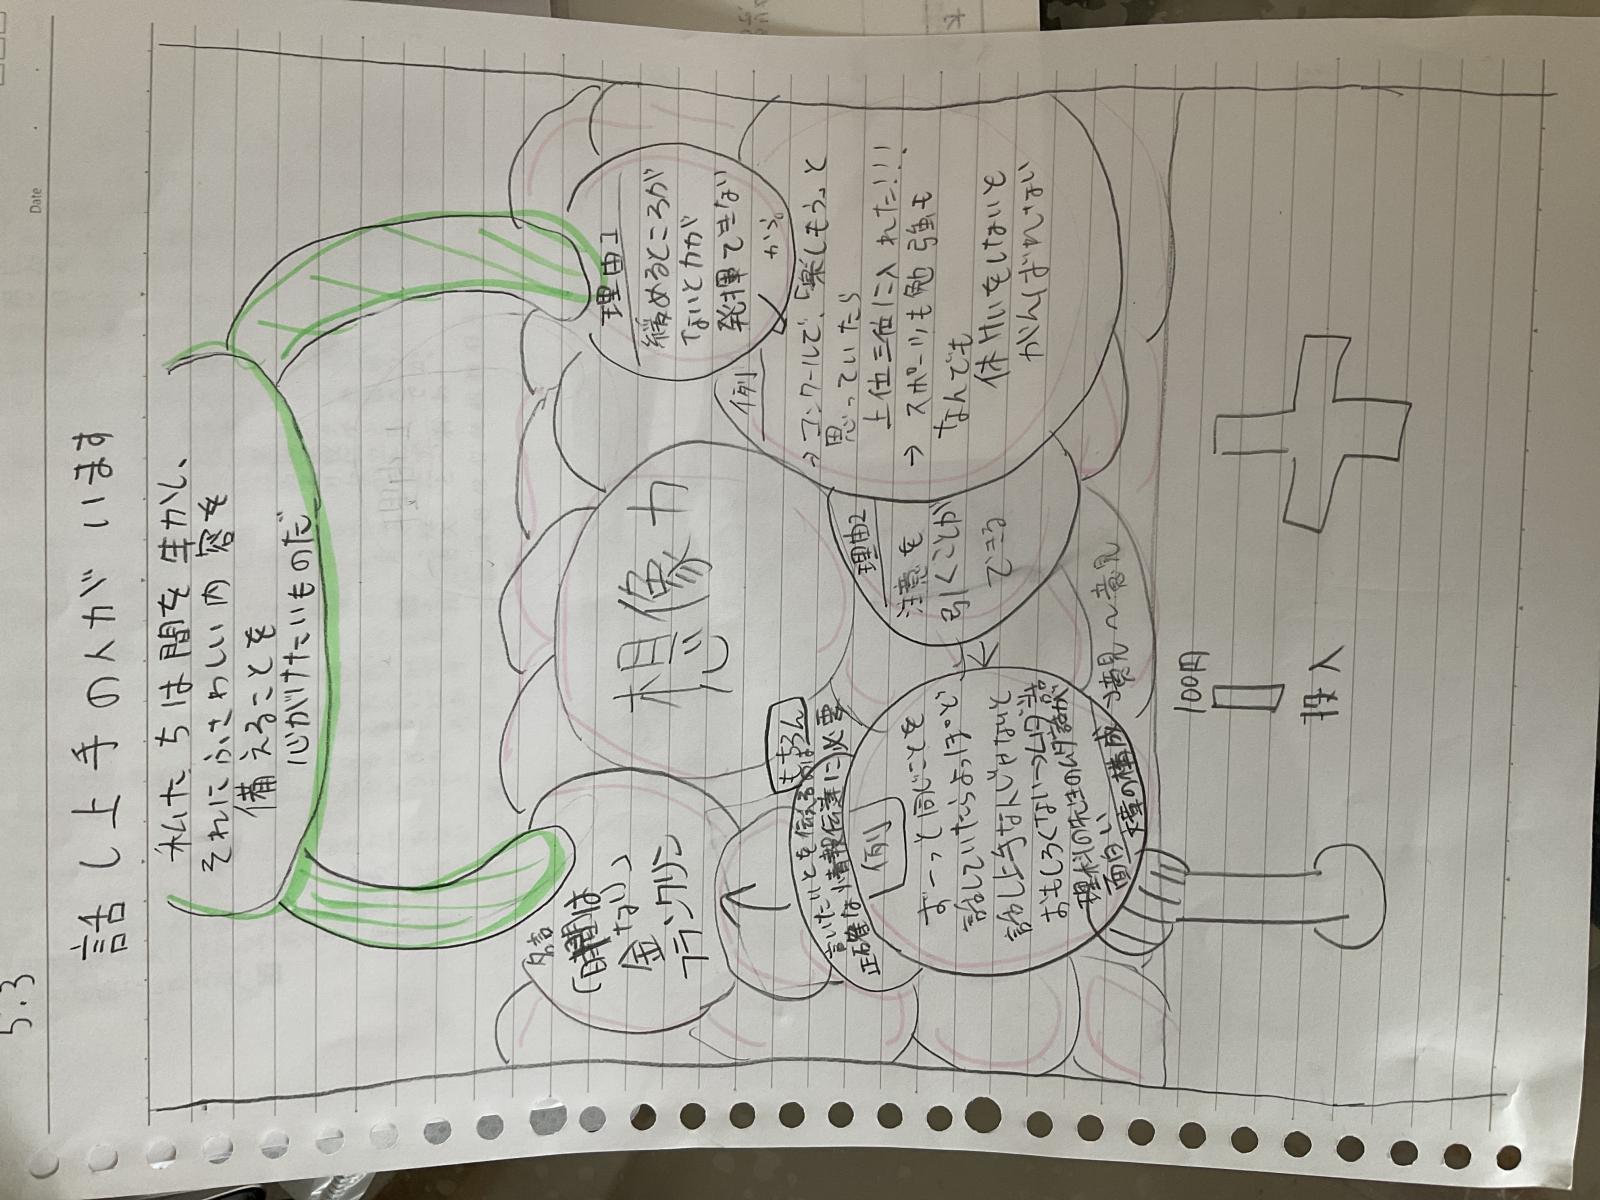 Date
5.3
話し上手の人がいます
私たちは間を生かし、
それにふさわしい内容を
備えることを
心がけたいものだ
理由1
緩めるところが
ないと力が
発揮できない
から。
例
→コンクールで、「楽しもう」と
思っていたら
上位三位に入れた!!!
→スポーツも勉強も
なんでも
休けいをしないと
がんばれない
想像力
理由2
注意を
引くことが
できる
名言
「時間は
金なり」
フランクリン
もちろん
言いたいことを伝えるのは
正確な情報伝達に必要
例
ずーっと同じことを
話していたらよっぽど
話し上手な人じゃないと
おもしろくない
理科の先生の
面白い
文章の構成→意見〜意見
100円
投入